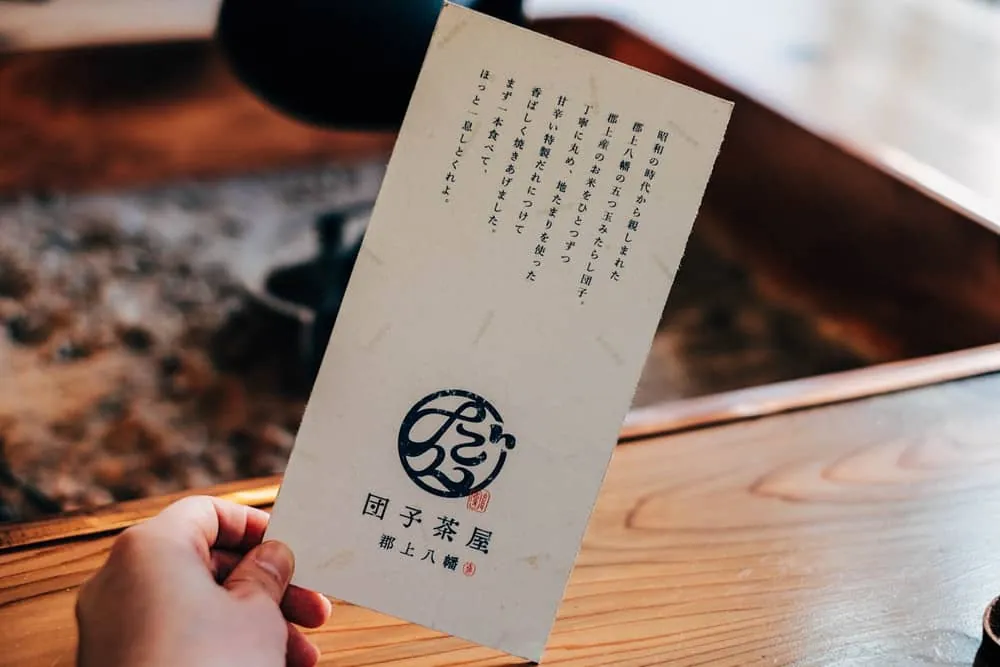 昭和の時代から親しまれた
郡上八幡の五つ玉みたらし団子。
郡上産のお米をひとつずつ
丁寧に丸め、地たまりを使った
甘辛い特製だれにつけて
香ばしく焼きあげました。
まず一本食べて、
ほっと一息しとくれよ。
団子茶屋
郡上八幡